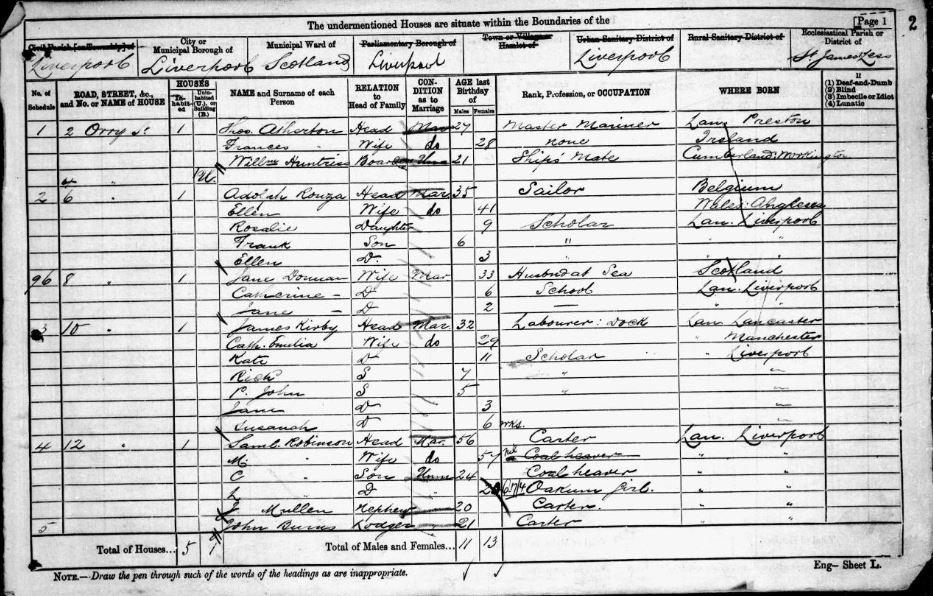 The undermentioned Houses are situate within the Boundaries of the
[Page 1
2
Civil Parish [or Township] of
City or Municipal Borough of
Municipal Ward of
Parliamentary Borough of
Town or Village or Hamlet of
Urban Sanitary District of
Rural Sanitary District of
Ecclesiastical Parish or District of
Liverpool Liverpool Scotland Liverpool Liverpool St. James Less
No. of Schedule
ROAD, STREET, &c., and No. or NAME of HOUSE
HOUSES
Inhabited
Uninhabited (U.), or Building (B.)
NAME and Surname of each Person
RELATION to Head of Family
CONDITION as to Marriage
AGE last Birthday of
Males Females
Rank, Profession, or OCCUPATION
WHERE BORN
If
(1) Deaf-and-Dumb
(2) Blind
(3) Imbecile or Idiot
(4) Lunatic
1 2 Orry St 1 Thos. Atherton Head Mar 27 Master Mariner Lan. Preston
Frances Wife do 28 none Ireland
Willm Huntriss Boarder Unm 21 Ships Mate Cumberland: Workington
4 " U.
2 6 " 1 Adolph Rouza Head Mar. 35 Sailor Belgium
Ellen Wife do 41 Wales: Anglesea
Rosalie Daughter 9 Scholar Lan. Liverpool
Frank Son 6 " " "
Ellen D. 3 " "
96 8 " 1 Jane Donnan Wife Mar 33 Husbnd at Sea Scotland
Catherine – D 6 School Lan. Liverpool
Jane – D 2 — " "
3 10 " 1 James Kirby Head Mar. 32 Labourer: Dock Lan. Lancaster
Cath. Emilia Wife do 29 " Manchester
Kate D 11 Scholar " Liverpool
Rich S 7 " "
John S 5 " "
Jane D 3 "
Susanah D 6 wks. "
4 12 " 1 Saml. Robinson Head Mar. 56 Carter Lan. Liverpool
M. " Wife do 57 Coal heaver " "
C " Son Unm 24 Coal heaver " "
" D " 20 Oakum girl. " "
J Mullen Nephew — 20 Carter. " "
5 John Burns Lodger — 21 Carter " "
Total of Houses... 5 1
Total of Males and Females... 11 13
NOTE.—Draw the pen through such of the words of the headings as are inappropriate.
Eng—Sheet L.